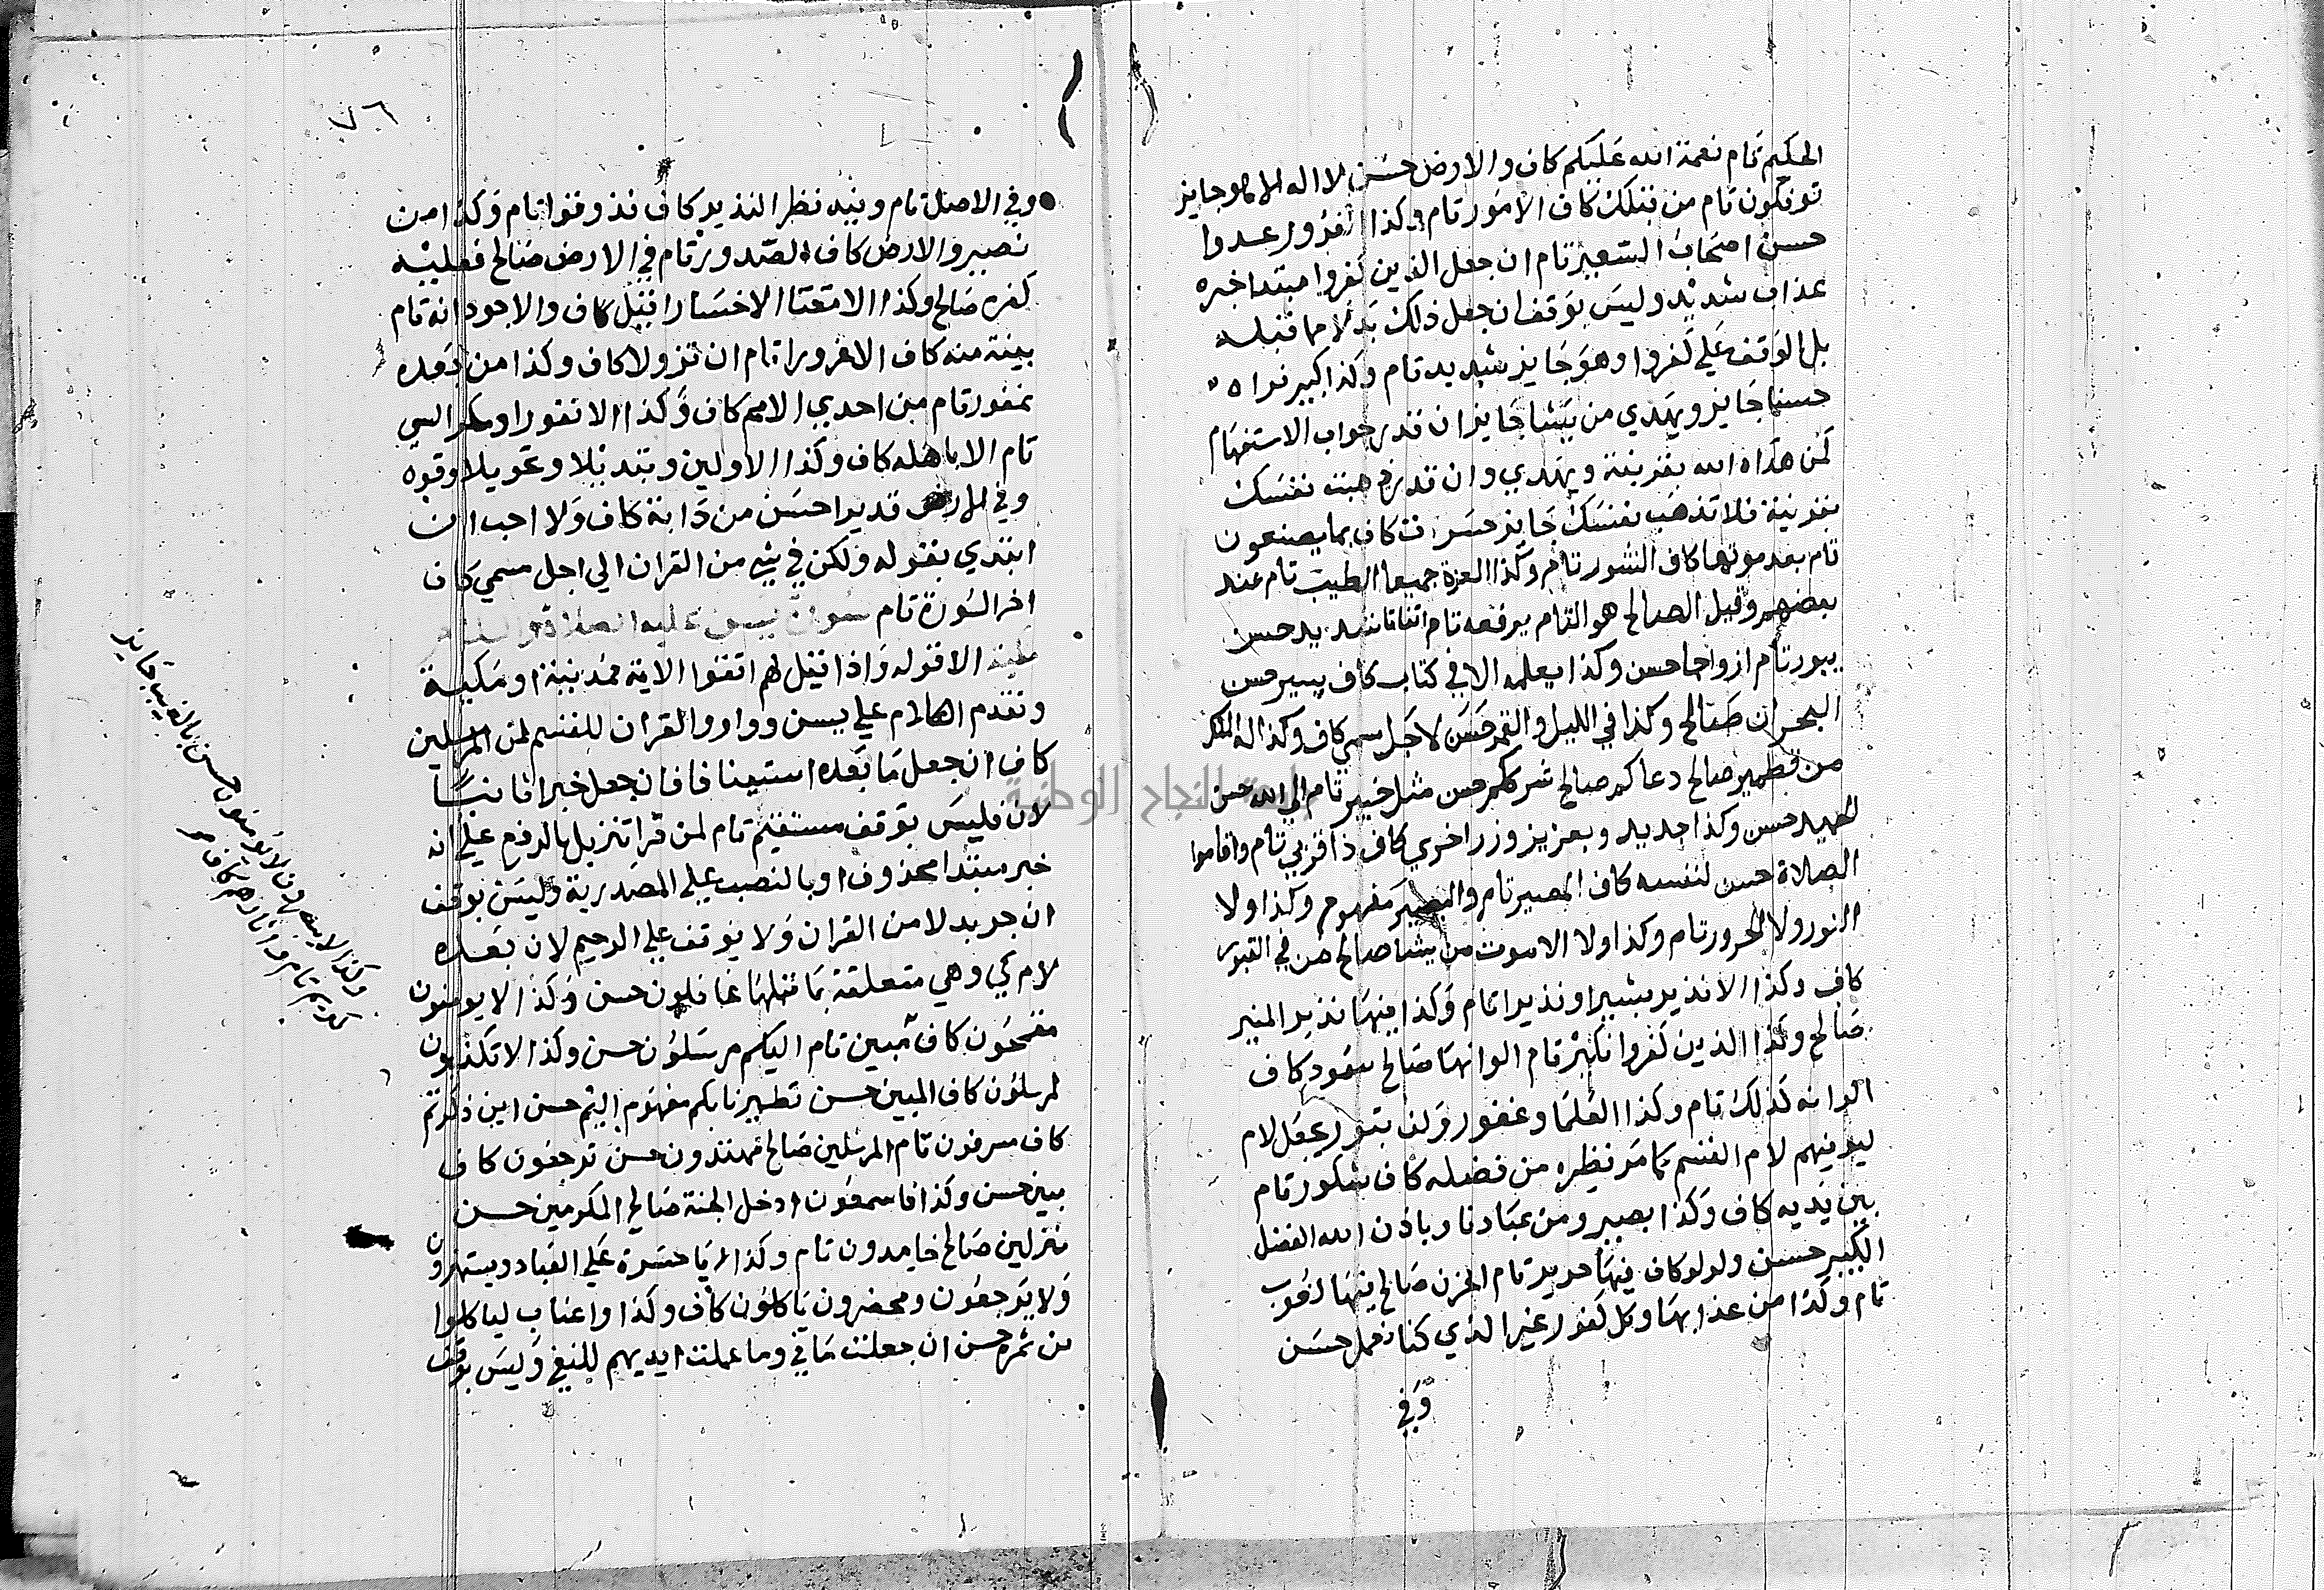 الحكيم تام نعمة الله عليكم كاف والارض حسن لا اله الا هو جايز
توفكون تام من قبلك كاف الامور تام وكذا الغرور عدوا
حسن اصحاب السعير تام ان جعل الذين كفروا مبتدا خبره
عذاب شديد وليس بوقف ان جعل ذلك بدلا مما قبله
بل الوقف على كفروا وهو جايز شديد تام وكذا كبير فراه
حسنا جايز ويهدي من يشا جايز ان قدر جواب الاستفهام
كمن هداه الله بقرينة ويهدي وان قدر ذهبت نفسك
بقرينة فلا تذهب نفسك جايز حسرات كاف بما يصنعون
تام بعد موتها كاف النشور تام وكذا العزة جميعا الطيب تام عند
بعضهم وقيل الصالح هو التام يرفعه تام اتفاقا شديد حسن
يبور تام ازواجا حسن وكذا بعلمه الا في كتاب كاف يسير حسن
البحران صالح وكذا في الليل والقمر حسن لاجل مسمي كاف وكذا له الملك
من قطمير صالح دعاكم صالح بشرككم حسن مثل خبير تام الي الله حسن
الحميد حسن وكذا جديد وبعزيز وزر اخري كاف ذا قربي تام واقاموا
الصلاة حسن لنفسه كاف المصير تام والبصير مفهوم وكذا ولا
النور ولا الحرور تام وكذا ولا الاموت من يشا صالح من في القبور
كاف وكذا الا نذير بشيرا ونذيرا تام وكذا فيها نذير المنير
صالح وكذا الذين كفروا نكير تام الوانها صالح سود كاف
الوانه كذلك تام وكذا العلما وغفور ولن تبور بجعل لام
ليوفيهم لام القسم كما مر نظيره من فضله كاف شكور تام
بين يديه كاف وكذا بصير ومن عبادنا وباذن الله الفضل
الكبير حسن ولولو كاف فيها حرير تام الحزن صالح فيها لغوب
تام وكذا من عذابها وكل كفور غير الذي كنا نعمل حسن
وفي
٧٦
وفي الاصل تام وبيد نظر النذير كاف فذوقوا تام وكذا من
نصير والارض كاف الصدور تام في الارض صالح فعليه
كفره صالح وكذا الا مقتا الا خسارا قيل كاف والاجود انه تام
بينة منه كاف الا غرورا تام ان تزولا كاف وكذا من بعده
غفور تام من احدي الامم كاف وكذا الا نفورا ومكر السي
تام الا باهله كاف وكذا الاولين وتبديلا وتحويلا وقوة
وفي الارض قديرا حسن من دابة كاف ولا احب ان
ابتدي بقوله ولكن في شي من القران الي اجل مسمي كاف
اخر السورة تام سورة يس عليه الصلاة والسلام
مكية الا قوله واذا قيل لهم اتقوا الاية مدنية او مكية
وتقدم الكلام علي يس وواو والقران للقسم لمن المرسلين
كاف ان جعل ما بعده استينافا فان جعل خبرا ثانيا
لان فليس بوقف مستقيم تام لمن قرا تنزيل بالرفع علي انه
خبر مبتدا محذوف او بالنصب علي المصدرية وليس بوقف
ان جر بدلا من القران ولا يوقف علي الرحيم لان بعده
لام كي وهي متعلقة بما قبلها غافلون حسن وكذا لا يومنون
مقمحون كاف مبين تام اليكم مرسلون حسن وكذا الا تكذبون
لمرسلون كاف المبين حسن تطيرنا بكم مفهوم اليم حسن اين ذكرتم
كاف مسرفون تام المرسلين صالح مهتدون حسن ترجعون كاف
مبين حسن وكذا فاسمعون ادخل الجنة صالح المكرمين حسن
منزلين صالح خامدون تام وكذا يا حسرة علي العباد ويستهزون
ولا يرجعون ومحضرون ياكلون كاف وكذا واعناب لياكلوا
من ثمره حسن ان جعلت ما في وما عملت ايديهم للنفي وليس بوقف
وكذا لا يبصرون لا يومنون حسن بالغيب جايز
كريم تام واثارهم كاف
جامعة النجاح الوطنية